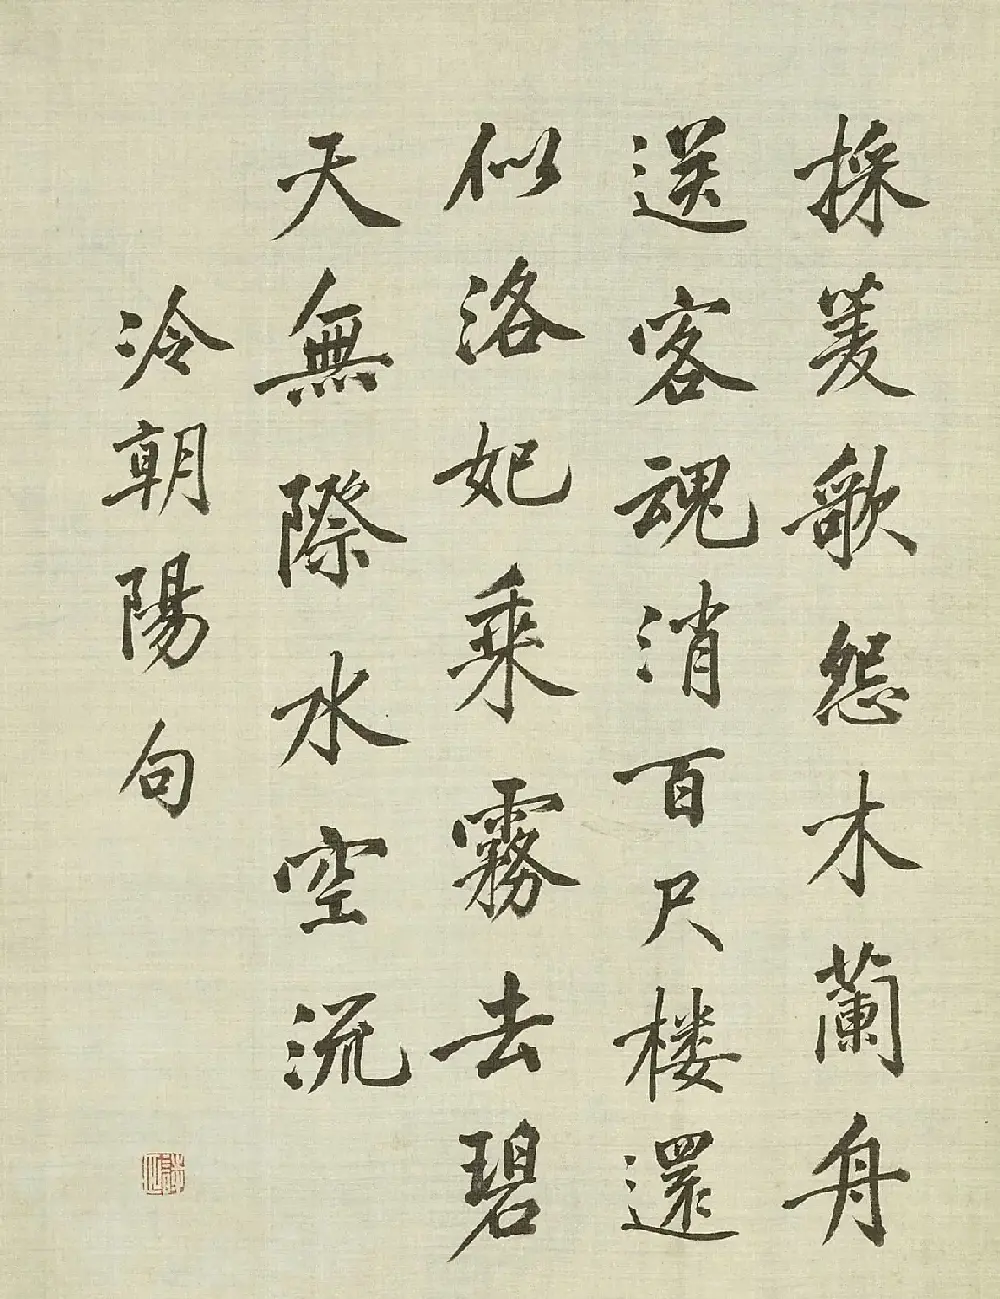 採菱歌怨木蘭舟
送客魂消百尺楼還
似洛妃乗霧去碧
天無際水空流
冷朝陽句